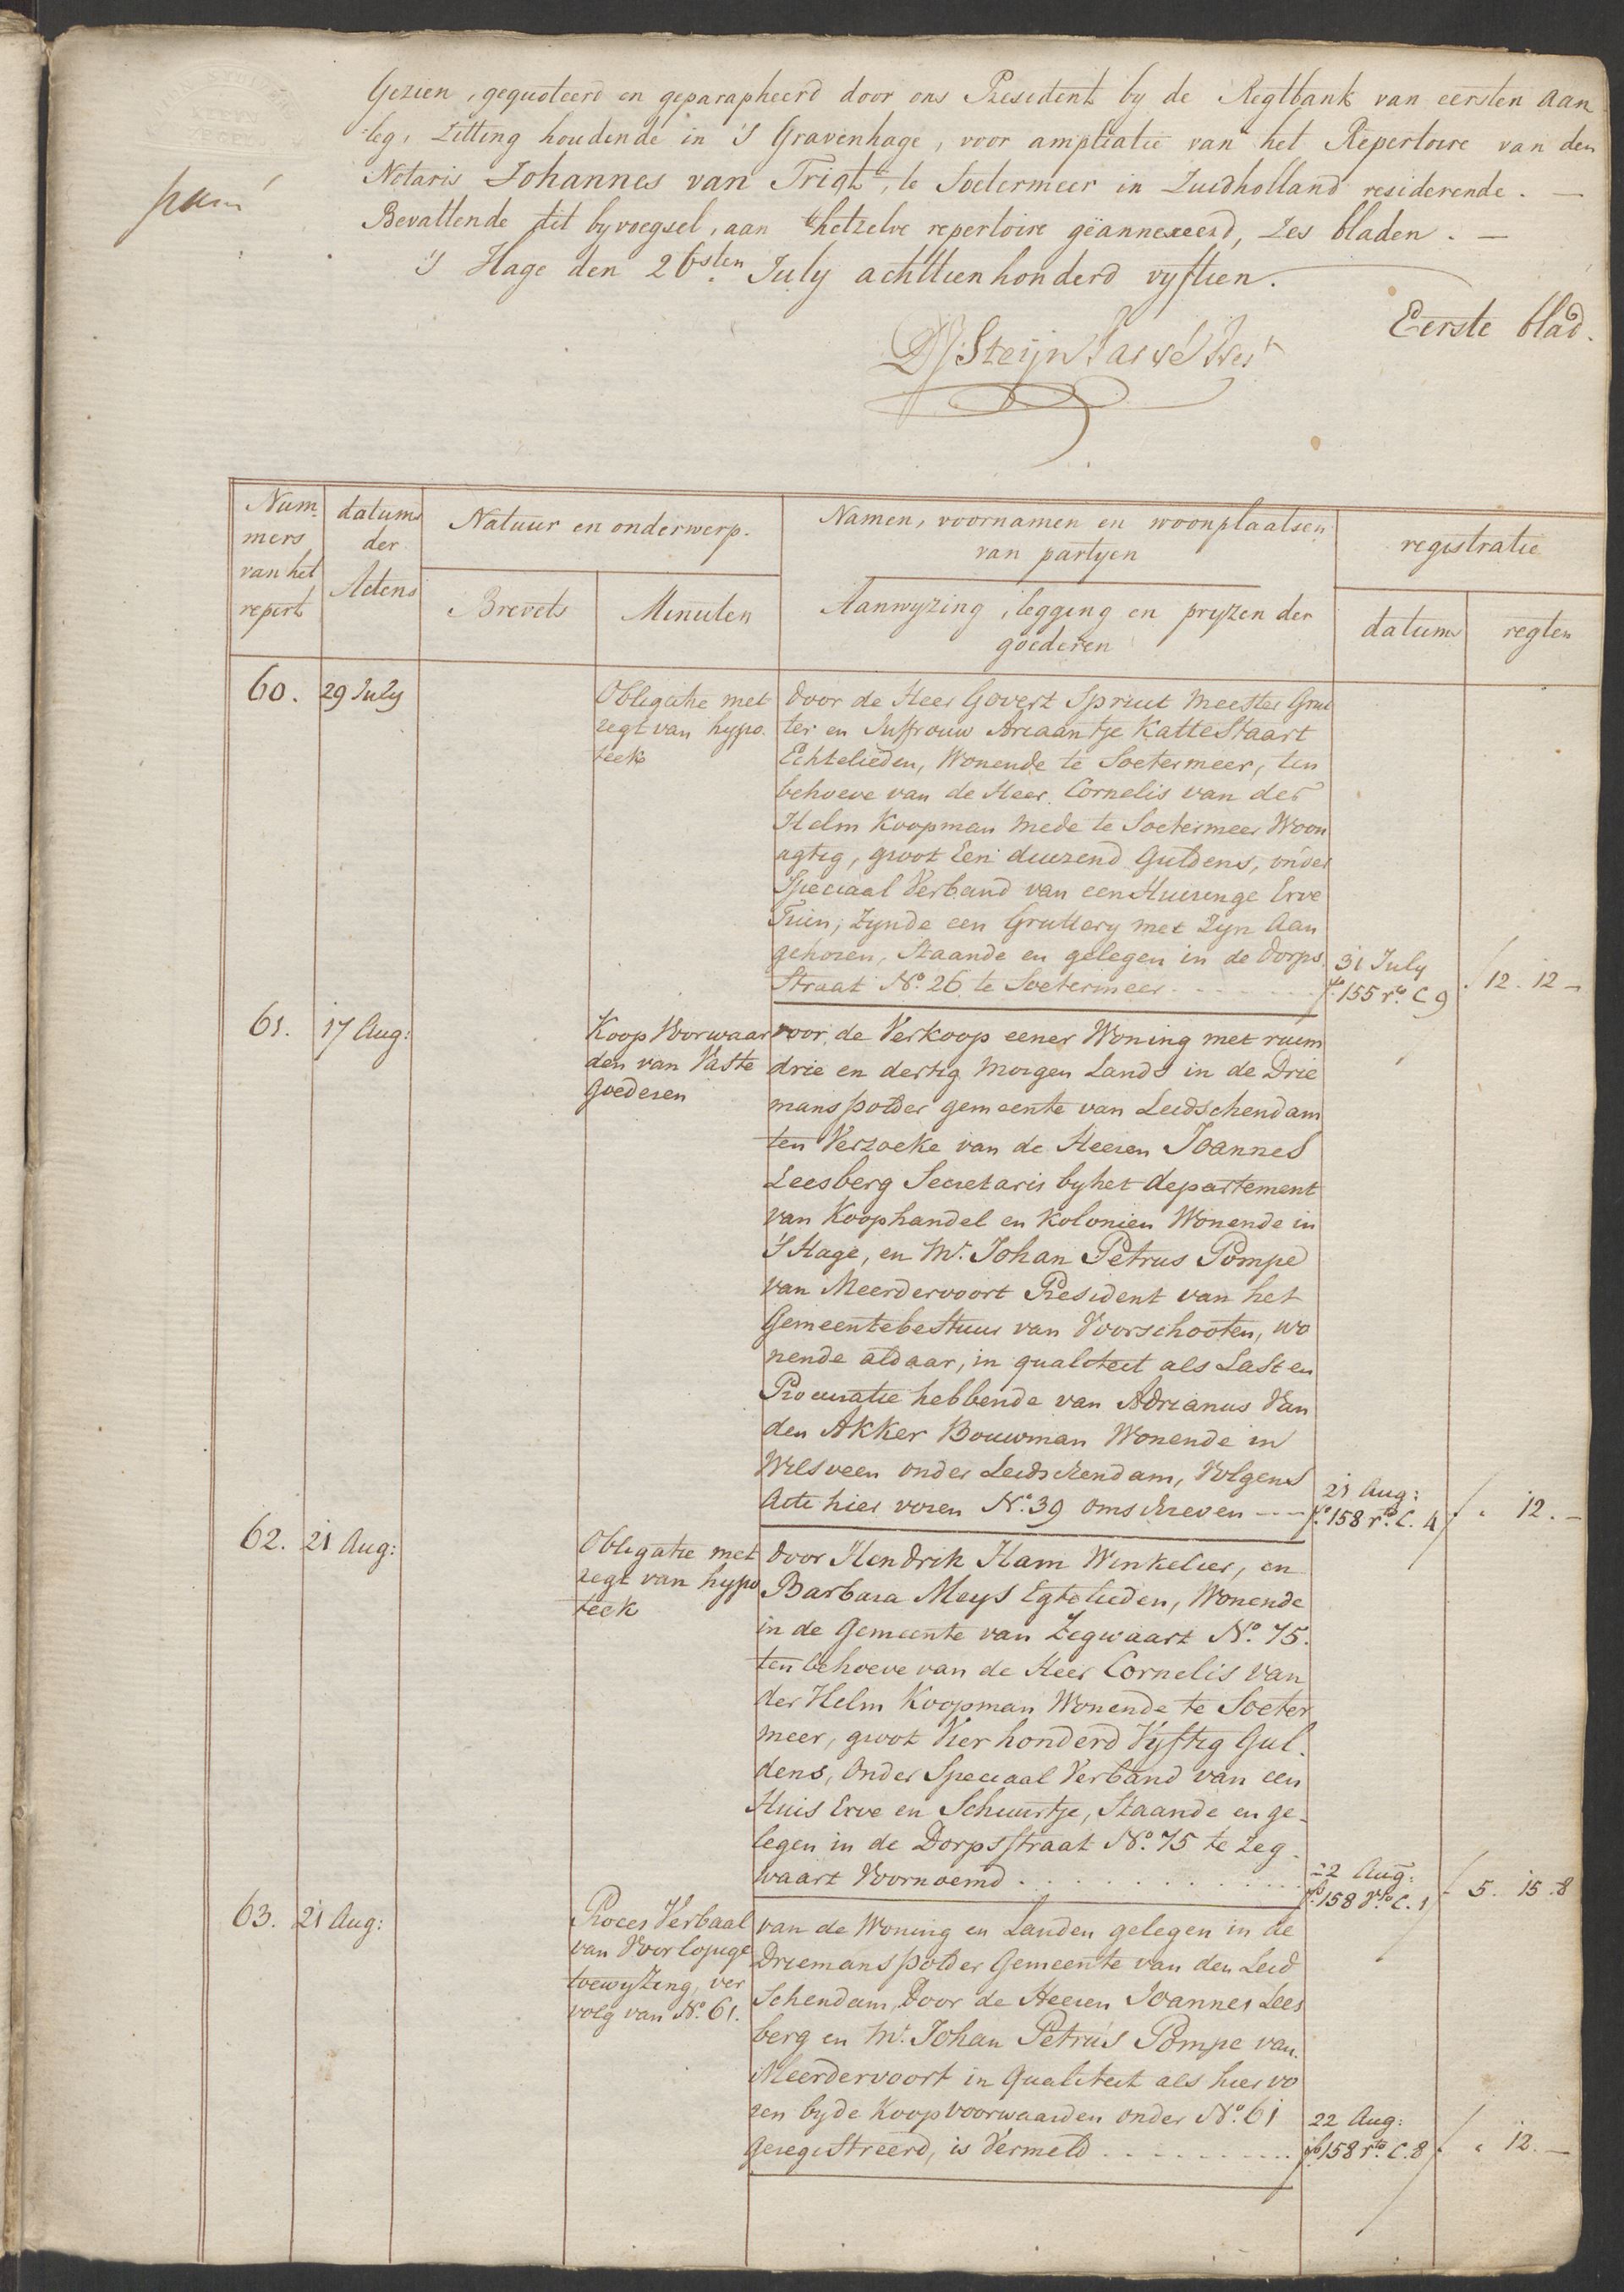 Gezien, gequoteerd en geparapheerd door ons President by de Regtbank van eersten Aan
leg, zitting houdende in 's Gravenhage, voor ampliatie van het Repertoire van den
Notaris Johannes van Trigt, te Soetermeer in Zuidholland residerende. —
Bevattende dit byvoegsel, aan 'thetzelve repertoire geannexeerd, zes bladen. —
'S Hage den 26sten July achttienhonderd vyftien.
Eerste blad.
Num
mers
van het
repert
datums
der
Actens
Natuur en onderwerp.
Brevets
Minuten
Namen, voornamen en woonplaatsen
van partyen
Aanwyzing, legging en pryzen der
goederen
registratie
datums
regten
60. 29 July
Obligatie met
regt van hypo
teek
door de Heer Govert Spruit Meester Grut
ter en Juffrouw Ariaantje Kattestaart
Echtelieden, Wonende te Soetermeer, ten
behoeve van de Heer Cornelis van der
Helm Koopman mede te Soetermeer Woon
agtig, groot Een duizend Guldens, onder
Speciaal Verband van een Huizinge Erve
Tuin, Zynde een Gruttery met Zyn Aan
gehoren, Staande en gelegen in de Dorps
Straat No. 26 te Soetermeer
31 July
fo. 155 ro. C 9
12. 12 –
61. 17 Aug:
Koop Voorwaar
den van Vaste
goederen
voor de Verkoop eener Woning met ruim
drie en dertig Morgen Lands in de Drie
manspolder gemeente van Leidschendam
ten Verzoeke van de Heeren Joannes
Leesberg Secretaris by het departement
van Koophandel en Kolonien Wonende in
'S Hage, en Mr. Johan Petrus Pompe
van Meerdervoort President van het
Gemeentebestuur van Voorschooten, wo
nende aldaar, in qualiteit als Last en
Procuratie hebbende van Adrianus Van
den Akker Bouwman Wonende in
Wilsveen onder Leidschendam, Volgens
Acte hier voren No. 39 omschreven
21 Aug:
fo. 158 rto. C. 4
" 12. –
62. 21 Aug:
Obligatie met
regt van hypo
teek
door Hendrik Ham Winkelier, en
Barbara Meys Egtelieden, Wonende
in de Gemeente van Zegwaart No. 75.
ten behoeve van de Heer Cornelis Van
der Helm Koopman Wonende te Soeter
meer, groot Vier honderd Vyftig Gul
dens, Onder Speciaal Verband van een
Huis Erve en Schuurtje, Staande en ge-
legen in de Dorpsstraat No. 75 te Zeg-
waart Voornoemd
22 Aug:
fo. 158 Vto. C. 1
5. 15. 8
63. 21 Aug:
Proces Verbaal
van Voorlopige
toewyzing, ver
volg van No. 61.
van de Woning en Landen gelegen in de
Driemanspolder Gemeente van den Leid
Schendam, Door de Heeren Joannes Lees
berg en Mr. Johan Petrus Pompe van
Meerdervoort in Qualiteit als hier vo
ren by de Koopvoorwaarden onder No. 61
geregistreerd, is Vermeld
22 Aug:
fo. 158 rto. C. 8
" 12. –